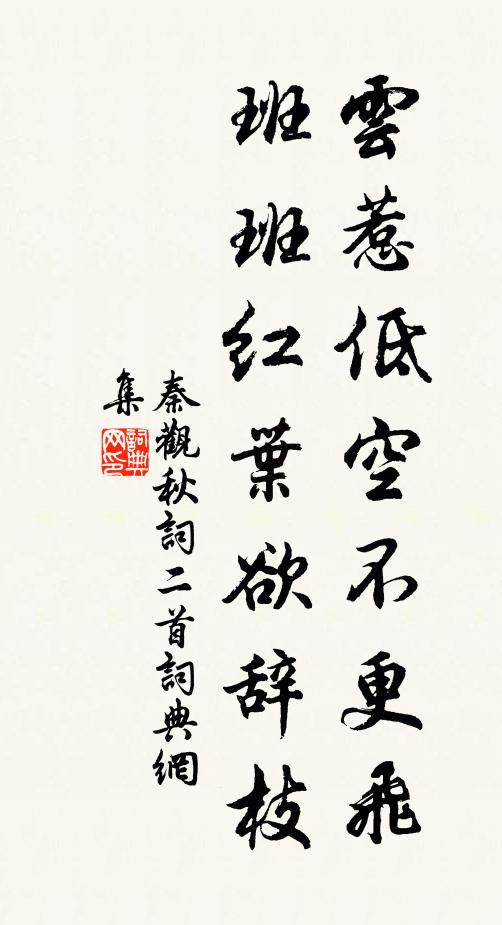 雲惹低空不更飛
班班紅葉欲辞枝
秦觀秋詞二首詞典網
集
詞典网印